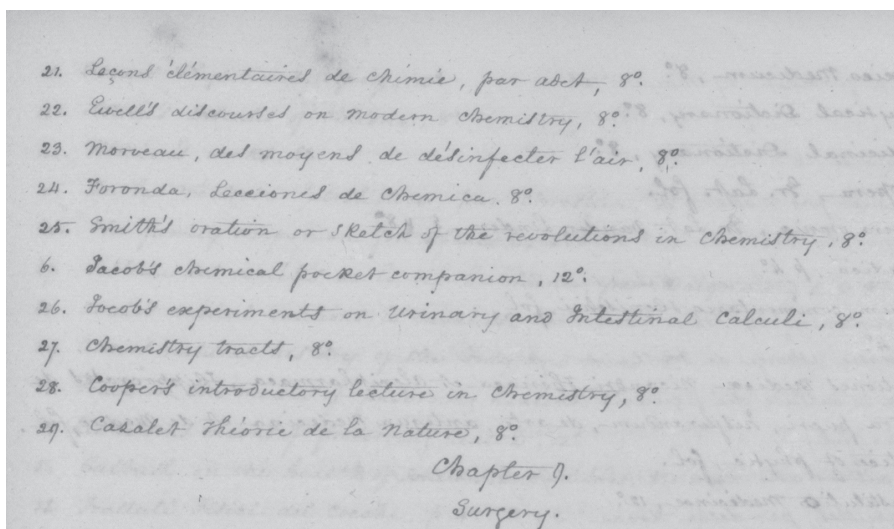 21. Leçons élémentaires de chimie, par adet, 8º.
22. Ewell's discourses on modern chemistry, 8º.
23. Morveau, des moyens de désinfecter l'air, 8º.
24. Foronda, Lecciones de chemica. 8º.
25. Smith's oration or sketch of the revolutions in chemistry, 8º.
6. Jacob's chemical pocket companion, 12º.
26. Jocob's experiments on Urinary and Intestinal Calculi, 8º.
27. Chemistry tracts, 8º.
28. Cooper's introductory lecture in Chemistry, 8º.
29. Cazalet Théorie de la Nature, 8º.
Chapter J.
Surgery.